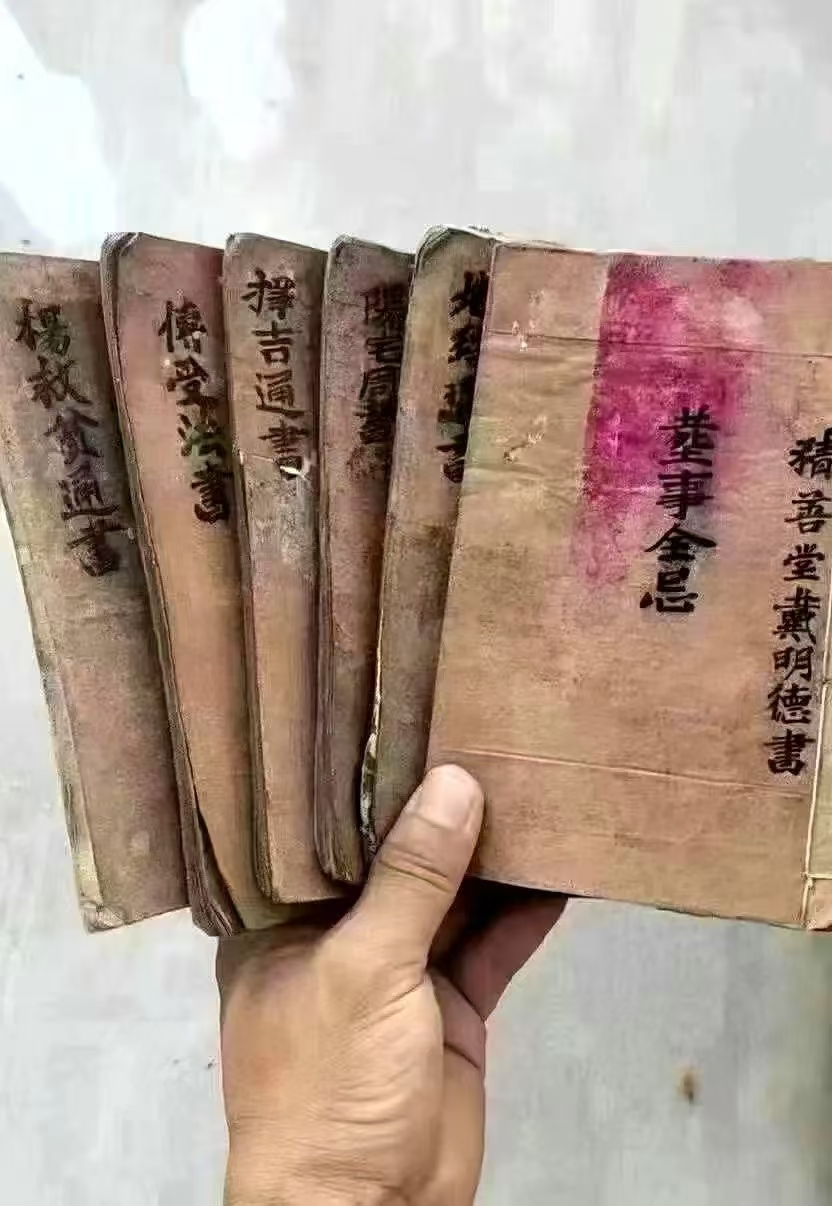 積善堂戴明德書
塟事全忌
地理通書
陽宅周書
擇吉通書
傳受法書
楊救貧通書